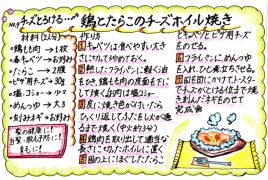 No.9 チーズとろける…
鶏とたらこのチーズホイル焼き
材料(2人分)
・鶏もも肉 → 1枚
・春キャベツ → お好み
・たらこ → 2腹
・ピザ用チーズ → 30g
・塩、コショー → 少々
・めんつゆ → 大3
・刻みネギ → お好み
髪の健康に!
白髪・脱毛予防に!
育毛に!
作り方
1 キャベツは食べやすい大き
さに切って炒めておく。
2 熱したフライパンに軽く油
をひき、塩・コショーで下味をし
て焼く(中火は
3 皮に焼き色が付いたら
ひっくり返してふたをし火が通
るまで焼く(中火約3分)
4 鶏肉を取り出して適当な
長さに切ったホイルに置く
5 鶏の上にほぐしたたらこ
とキャベツとピザ用チーズ
をのせる。
6 フライパンにめんつゆ
を入れひと煮立ちさせる。
7 5を回しかけてトースター
でチーズがとける位まで焼
き刻んだネギをのせて
完成